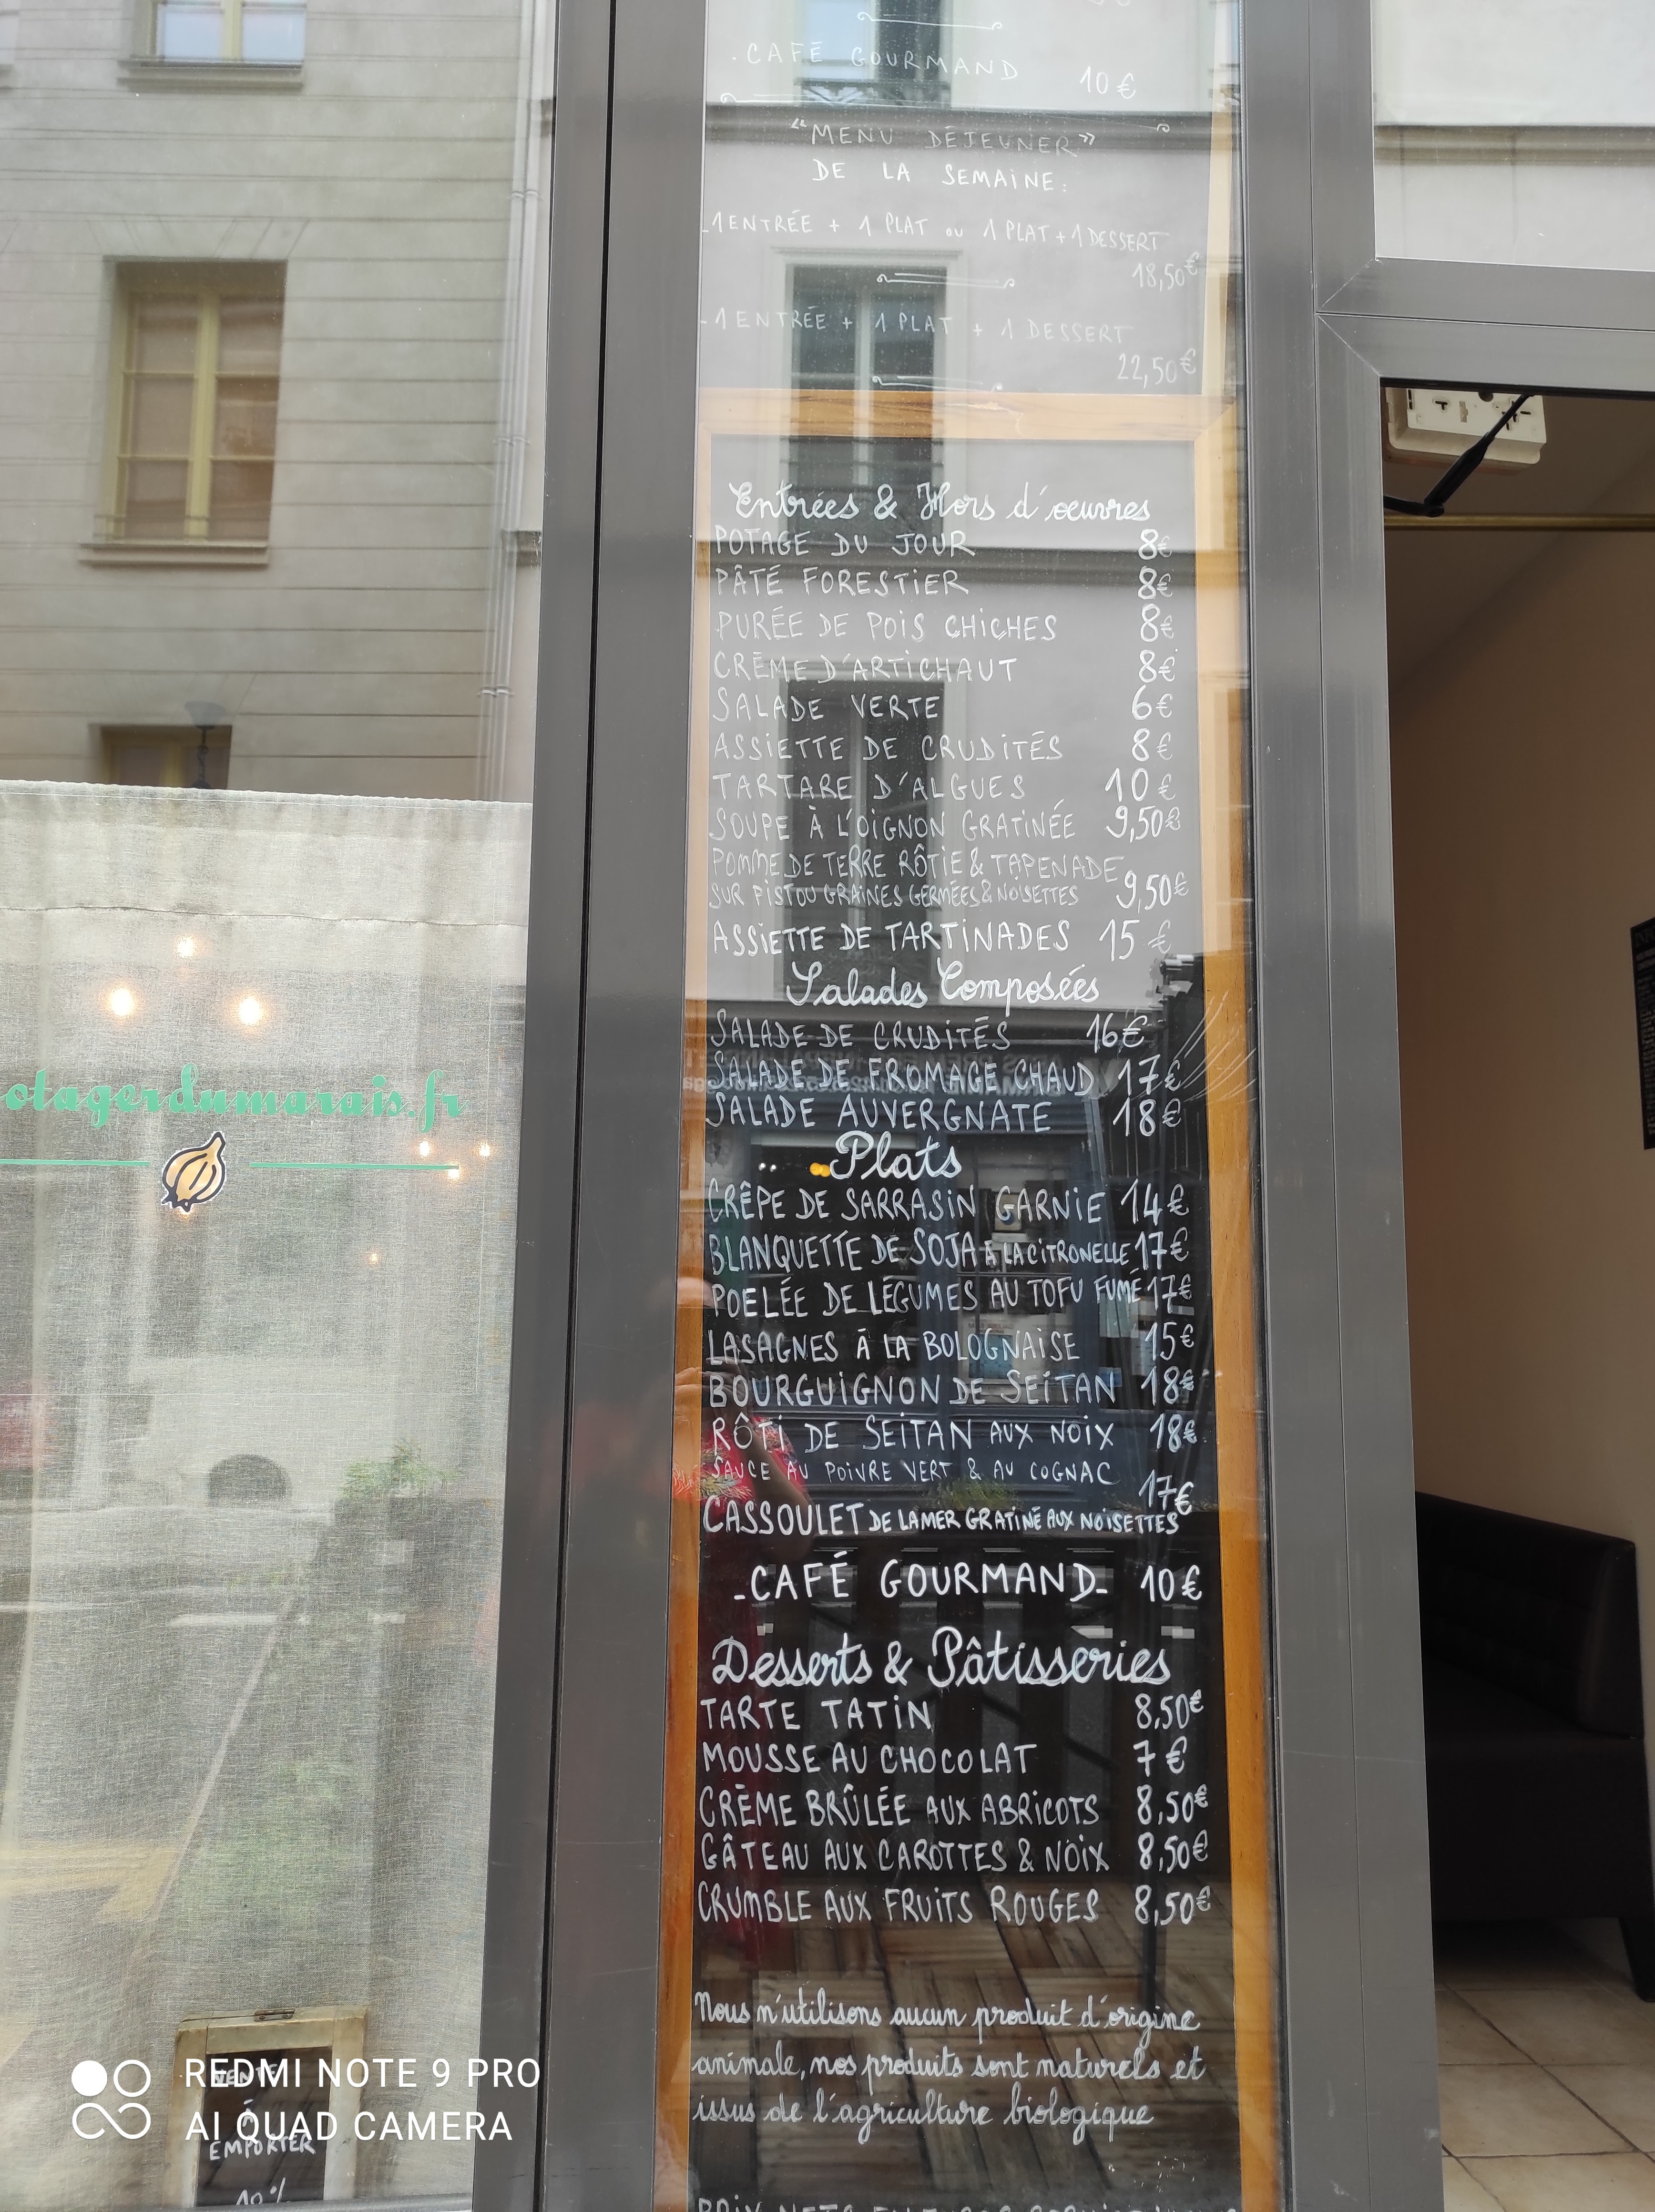 -CAFÉ GOURMAND 10€
“MENU DÉJEUNER”
DE LA SEMAINE:
-1 ENTRÉE + 1 PLAT ou 1 PLAT + 1 DESSERT
18,50€
-1 ENTRÉE + 1 PLAT + 1 DESSERT
22,50€
Entrées & Hors d'oeuvres
POTAGE DU JOUR 8€
PÂTÉ FORESTIER 8€
PURÉE DE POIS CHICHES 8€
CRÈME D'ARTICHAUT 8€
SALADE VERTE 6€
ASSIETTE DE CRUDITÉS 8€
TARTARE D'ALGUES 10€
SOUPE À L'OIGNON GRATINÉE 9,50€
POMME DE TERRE RÔTIE & TAPENADE
SUR PISTOU GRAINES GERMÉES & NOISETTES 9,50€
ASSIETTE DE TARTINADES 15€
Salades Composées
SALADE DE CRUDITÉS 16€
SALADE DE FROMAGE CHAUD 17€
SALADE AUVERGNATE 18€
Plats
CRÊPE DE SARRASIN GARNIE 14€
BLANQUETTE DE SOJA A LA CITRONELLE 17€
POELÉE DE LÉGUMES AU TOFU FUMÉ 17€
LASAGNES À LA BOLOGNAISE 15€
BOURGUIGNON DE SEITAN 18€
RÔTI DE SEITAN AUX NOIX 18€
SAUCE AU POIVRE VERT & AU COGNAC
17€
CASSOULET DE LA MER GRATINÉ AUX NOISETTES
-CAFÉ GOURMAND- 10€
Desserts & Pâtisseries
TARTE TATIN 8,50€
MOUSSE AU CHOCOLAT 7€
CRÈME BRÛLÉE AUX ABRICOTS 8,50€
GÂTEAU AUX CAROTTES & NOIX 8,50€
CRUMBLE AUX FRUITS ROUGES 8,50€
Nous n'utilisons aucun produit d'origine
animale, nos produits sont naturels et
issus de l'agriculture biologique
otagerdumarais.fr
VENTE
À
EMPORTER
REDMI NOTE 9 PRO
AI QUAD CAMERA